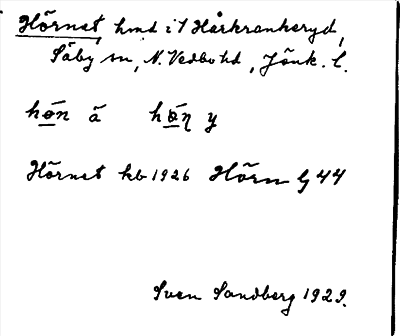 Hörnet, hmd i 1 Hårkrankeryd,
Säby sn, N. Vedbo hd, Jönk. l.
hön ä hön y
Hörnet kb 1926 Hörn G 44
Sven Sandberg 1929.